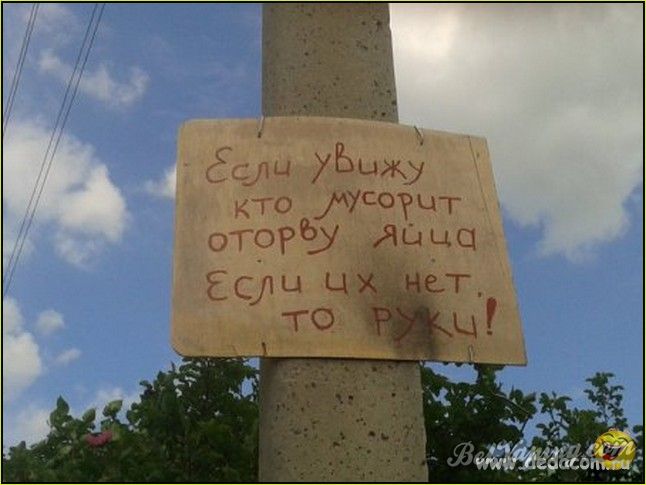 Если увижу
кто мусорит
оторву яйца
Если их нет,
то руки!
www.dedacom.ru